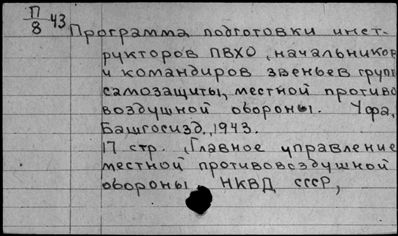 П/8 43
Программа подготовки инст-
рукторов ПВХО, начальников
и командиров звеньев групп
самозащиты, местной противо
воздушной обороны. Уфа,
Башгосизд., 1943.
17 стр. (Главное управление
местной противовоздушной
обороны НКВД СССР,